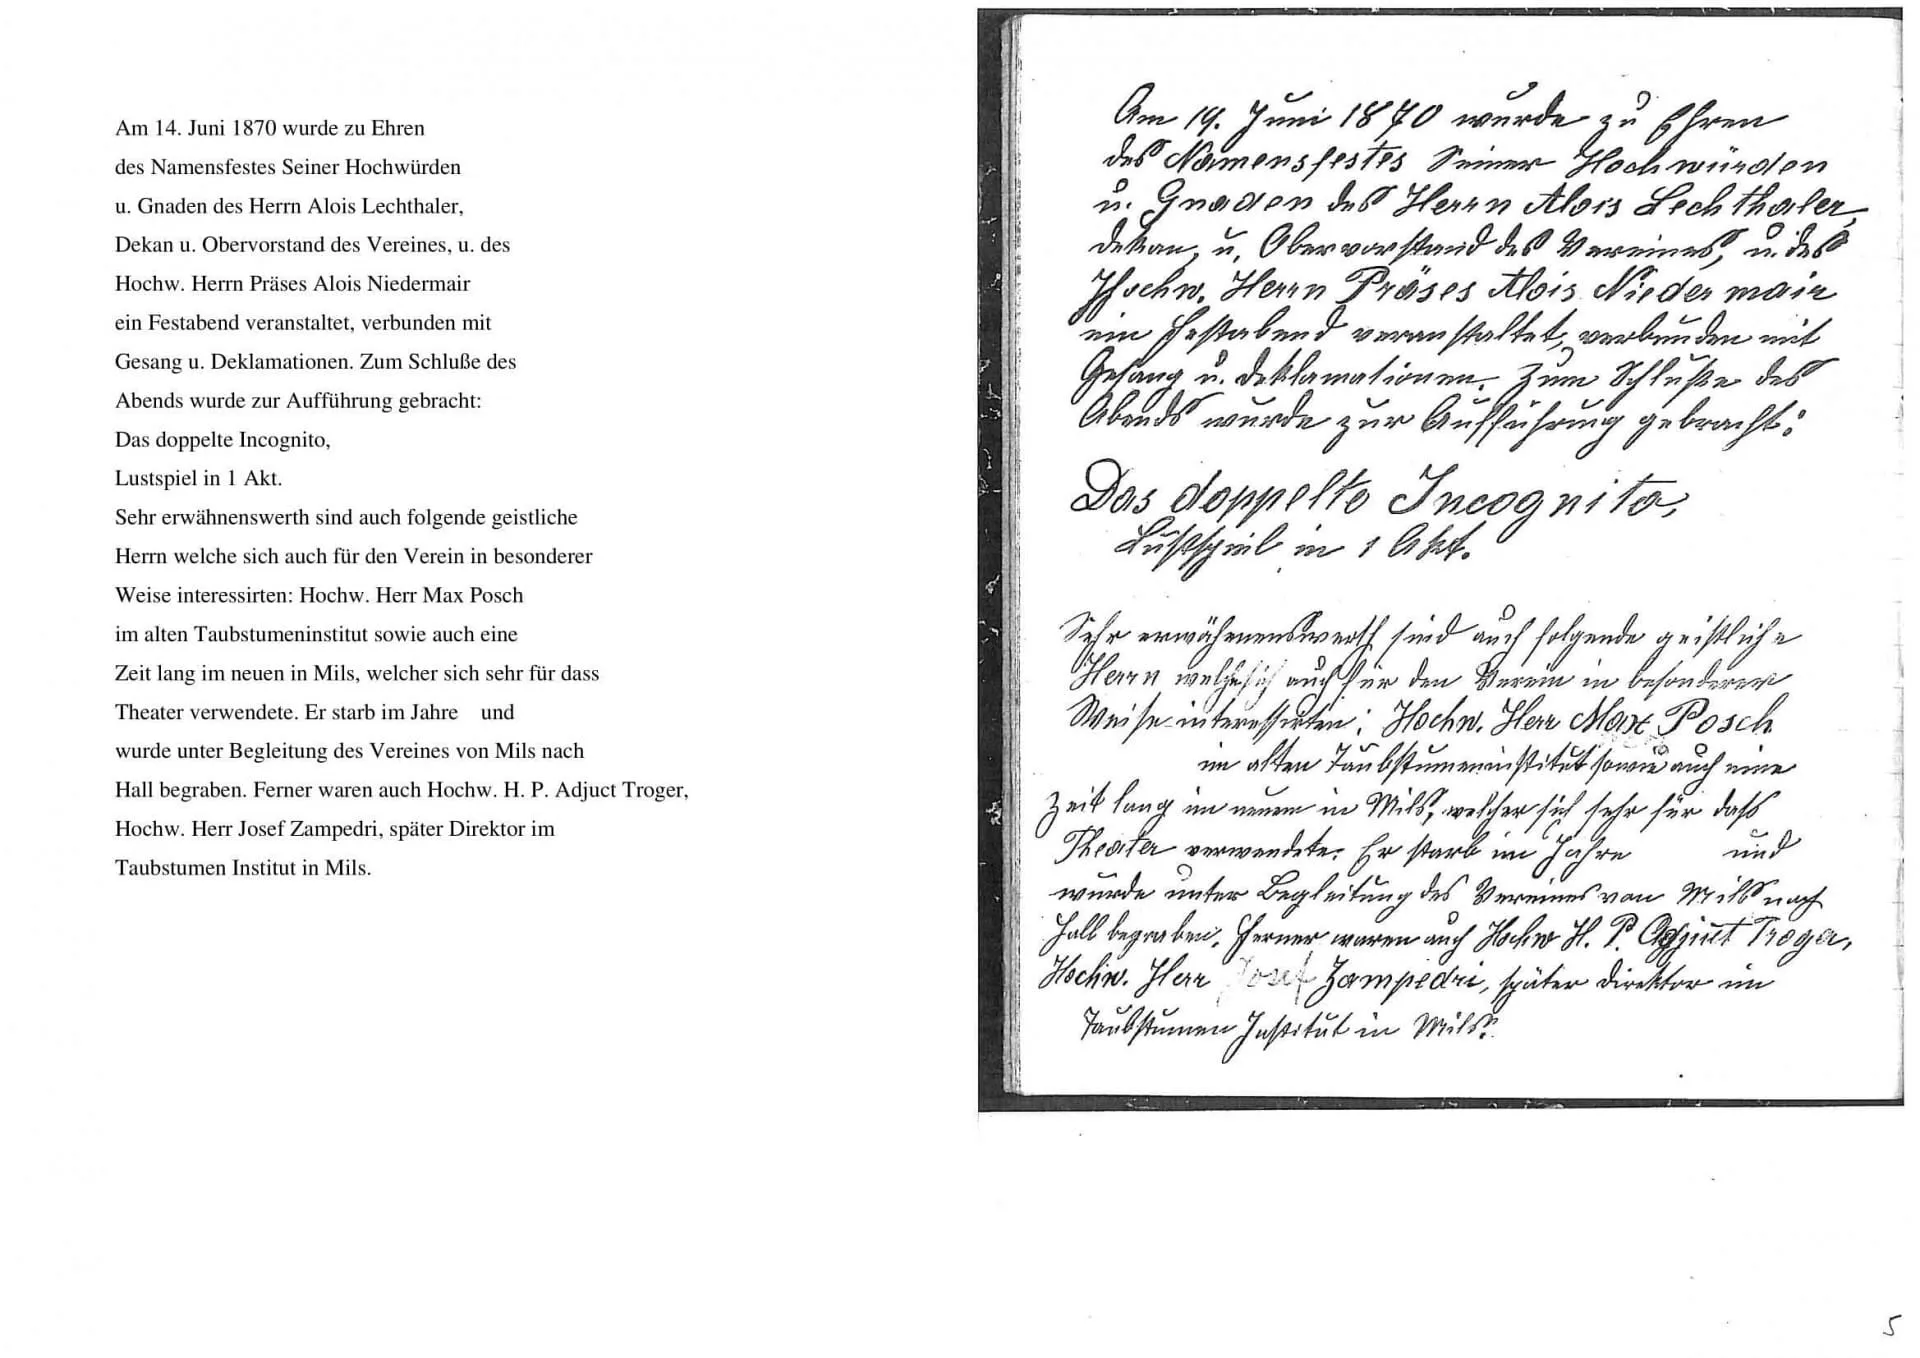 Am 14. Juni 1870 wurde zu Ehren
des Namensfestes Seiner Hochwürden
u. Gnaden des Herrn Alois Lechthaler,
Dekan u. Obervorstand des Vereines, u. des
Hochw. Herrn Präses Alois Niedermair
ein Festabend veranstaltet, verbunden mit
Gesang u. Deklamationen. Zum Schluße des
Abends wurde zur Aufführung gebracht:
Das doppelte Incognito,
Lustspiel in 1 Akt.
Sehr erwähnenswerth sind auch folgende geistliche
Herrn welche sich auch für den Verein in besonderer
Weise interessirten: Hochw. Herr Max Posch
im alten Taubstumeninstitut sowie auch eine
Zeit lang im neuen in Mils, welcher sich sehr für dass
Theater verwendete. Er starb im Jahre und
wurde unter Begleitung des Vereines von Mils nach
Hall begraben. Ferner waren auch Hochw. H. P. Adjuct Troger,
Hochw. Herr Josef Zampedri, später Direktor im
Taubstumen Institut in Mils.
Am 19. Juni 1870 wurde zu Ehren
des Namensfestes Seiner Hochwürden
u. Gnaden des Herrn Alois Lechthaler,
Dekan, u. Obervorstand des Vereines, u. des
Hochw. Herrn Präses Alois Niedermair
ein Festabend veranstaltet, verbunden mit
Gesang u. Deklamationen. Zum Schluße des
Abends wurde zur Aufführung gebracht:
Das doppelte Incognito,
Lustspiel in 1 Akt.
Sehr erwähnenswerth sind auch folgende geistliche
Herrn welche sich auch für den Verein in besonderer
Weise interessirten: Hochw. Herr Max Posch
im alten Taubstumeninstitut sowie auch eine
Zeit lang im neuen in Mils, welcher sich sehr für dass
Theater verwendete. Er starb im Jahre und
wurde unter Begleitung des Vereines von Mils nach
Hall begraben. Ferner waren auch Hochw H. P. Troger,
Hochw. Herr Josef Zampedri, später Direktor im
Taubstumen Institut in Mils.
5